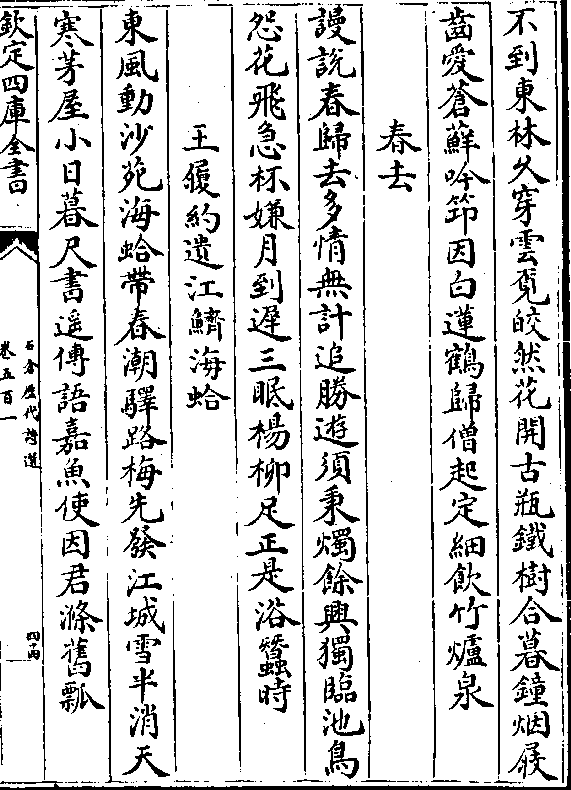 不到東林久穿雲覓皎然花開古瓶鐵樹合暮鐘烟屐
齒愛蒼蘚吟笻因白蓮鶴歸僧起定細飲竹爐泉
春去
謾說春歸去多情無計追勝遊須秉燭餘興獨臨池鳥
怨花飛急杯嫌月到遲三眠楊柳足正是浴蠶時
王履約遺江鱭海蛤
東風動沙苑海蛤帶春潮驛路梅先發江城雪半消天
寒茅屋小日暮尺書遥傳語嘉魚使因君滌舊瓢
欽定四庫全書
石倉歷代詩選
卷五百一